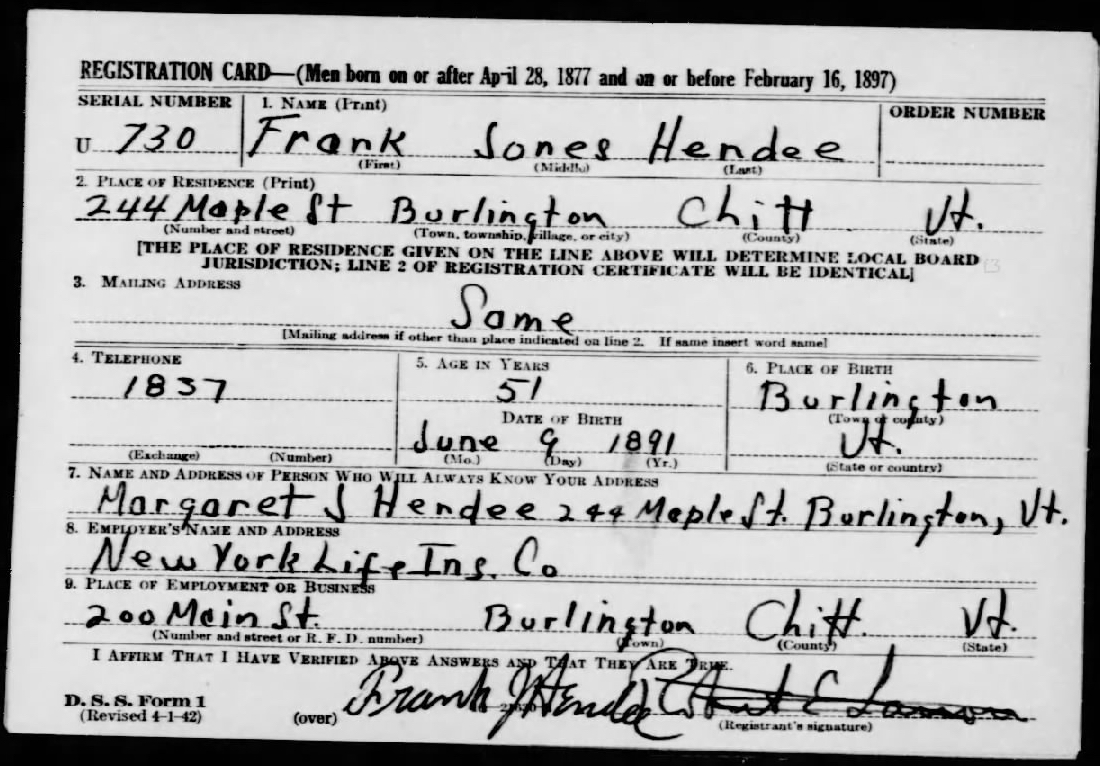 REGISTRATION CARD—(Men born on or after April 28, 1877 and on or before February 16, 1897)
SERIAL NUMBER 1. NAME (Print) ORDER NUMBER
U 730 Frank Jones Hendee
(First) (Middle) (Last)
2. PLACE OF RESIDENCE (Print)
244 Maple St Burlington Chitt Vt.
(Number and street) (Town, township, village, or city) (County) (State)
[THE PLACE OF RESIDENCE GIVEN ON THE LINE ABOVE WILL DETERMINE LOCAL BOARD
JURISDICTION; LINE 2 OF REGISTRATION CERTIFICATE WILL BE IDENTICAL]
3. MAILING ADDRESS
Same
[Mailing address if other than place indicated on line 2. If same insert word same]
4. TELEPHONE 5. AGE IN YEARS 6. PLACE OF BIRTH
1837 51 Burlington
DATE OF BIRTH (Town or county)
June 9 1891 Vt.
(Exchange) (Number) (Mo.) (Day) (Yr.) (State or country)
7. NAME AND ADDRESS OF PERSON WHO WILL ALWAYS KNOW YOUR ADDRESS
Margaret J Hendee 244 Maple St. Burlington, Vt.
8. EMPLOYER'S NAME AND ADDRESS
New York Life Ins. Co
9. PLACE OF EMPLOYMENT OR BUSINESS
200 Main St. Burlington Chitt. Vt.
(Number and street or R. F. D. number) (Town) (County) (State)
I AFFIRM THAT I HAVE VERIFIED ABOVE ANSWERS AND THAT THEY ARE TRUE.
D. S. S. Form 1
(Revised 4-1-42) (over) Frank J Hendee
(Registrant's signature)